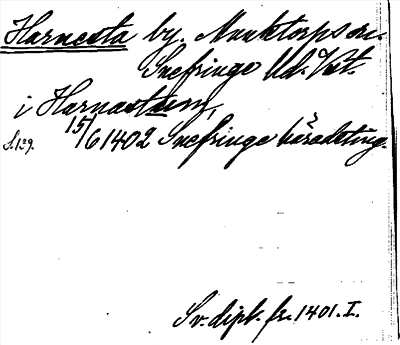 Harnesta by. Munktorps sn.
Snefringe hd. Vst.
i Harnastum,
S. 129. 15/6 1402 Snefringe häradsting.
Sv. dipl. fr. 1401. I.